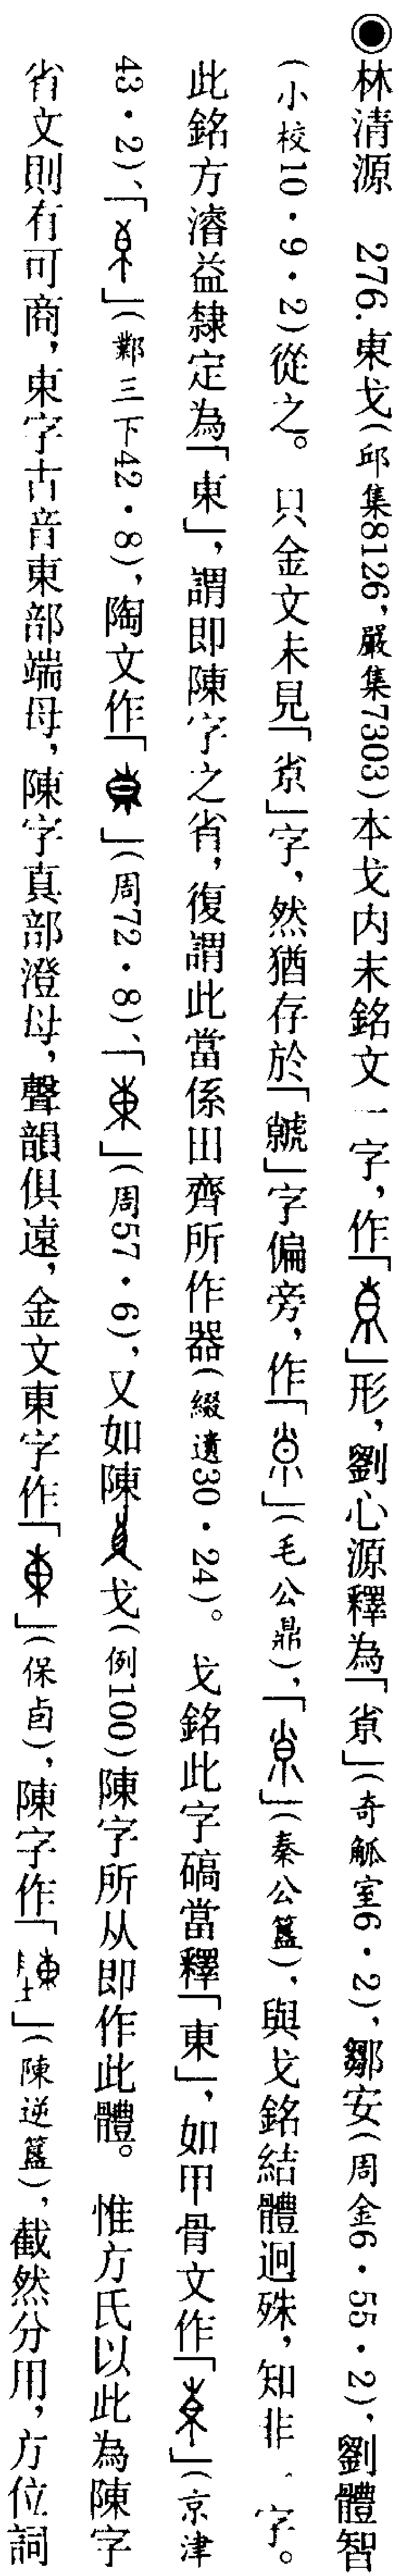 ◉林清源　276.東戈(邱集8126,嚴集7303)本戈内末銘文一字,作「」形,劉心源釋為「㡭」(奇觚室6·2)、鄒安(周金6·55·2)、劉體智
(小校10·9·2)從之。只金文未見「」字,然猶存於「虩」字偏旁,作「」(毛公鼎)、「」(秦公簋)、與戈銘結體迥殊,知非一字。
此銘方濬益隸定為「東」,謂即陳字之省,復謂此當係田齊所作器(綴遺30·24)。戈銘此字碻當釋「東」,如甲骨文作「」(京津
43·2)、「」(鄴三下42·8),陶文作「」(周72·8)、「」(周57·6),又如陳戈(例100)陳字所从即作此體。惟方氏以此為陳字
省文則有可商,東字古音東部端母,陳字真部澄母,聲韻俱遠,金文東字作「」(保卣),陳字作「」(陳逆簋),截然分用,方位詞